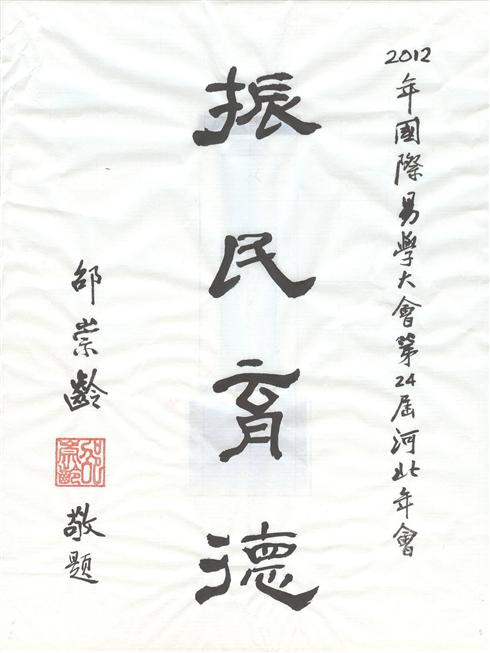 2012年國際易學大會第24屆河北年會
振民育德
邵崇齡
敬題